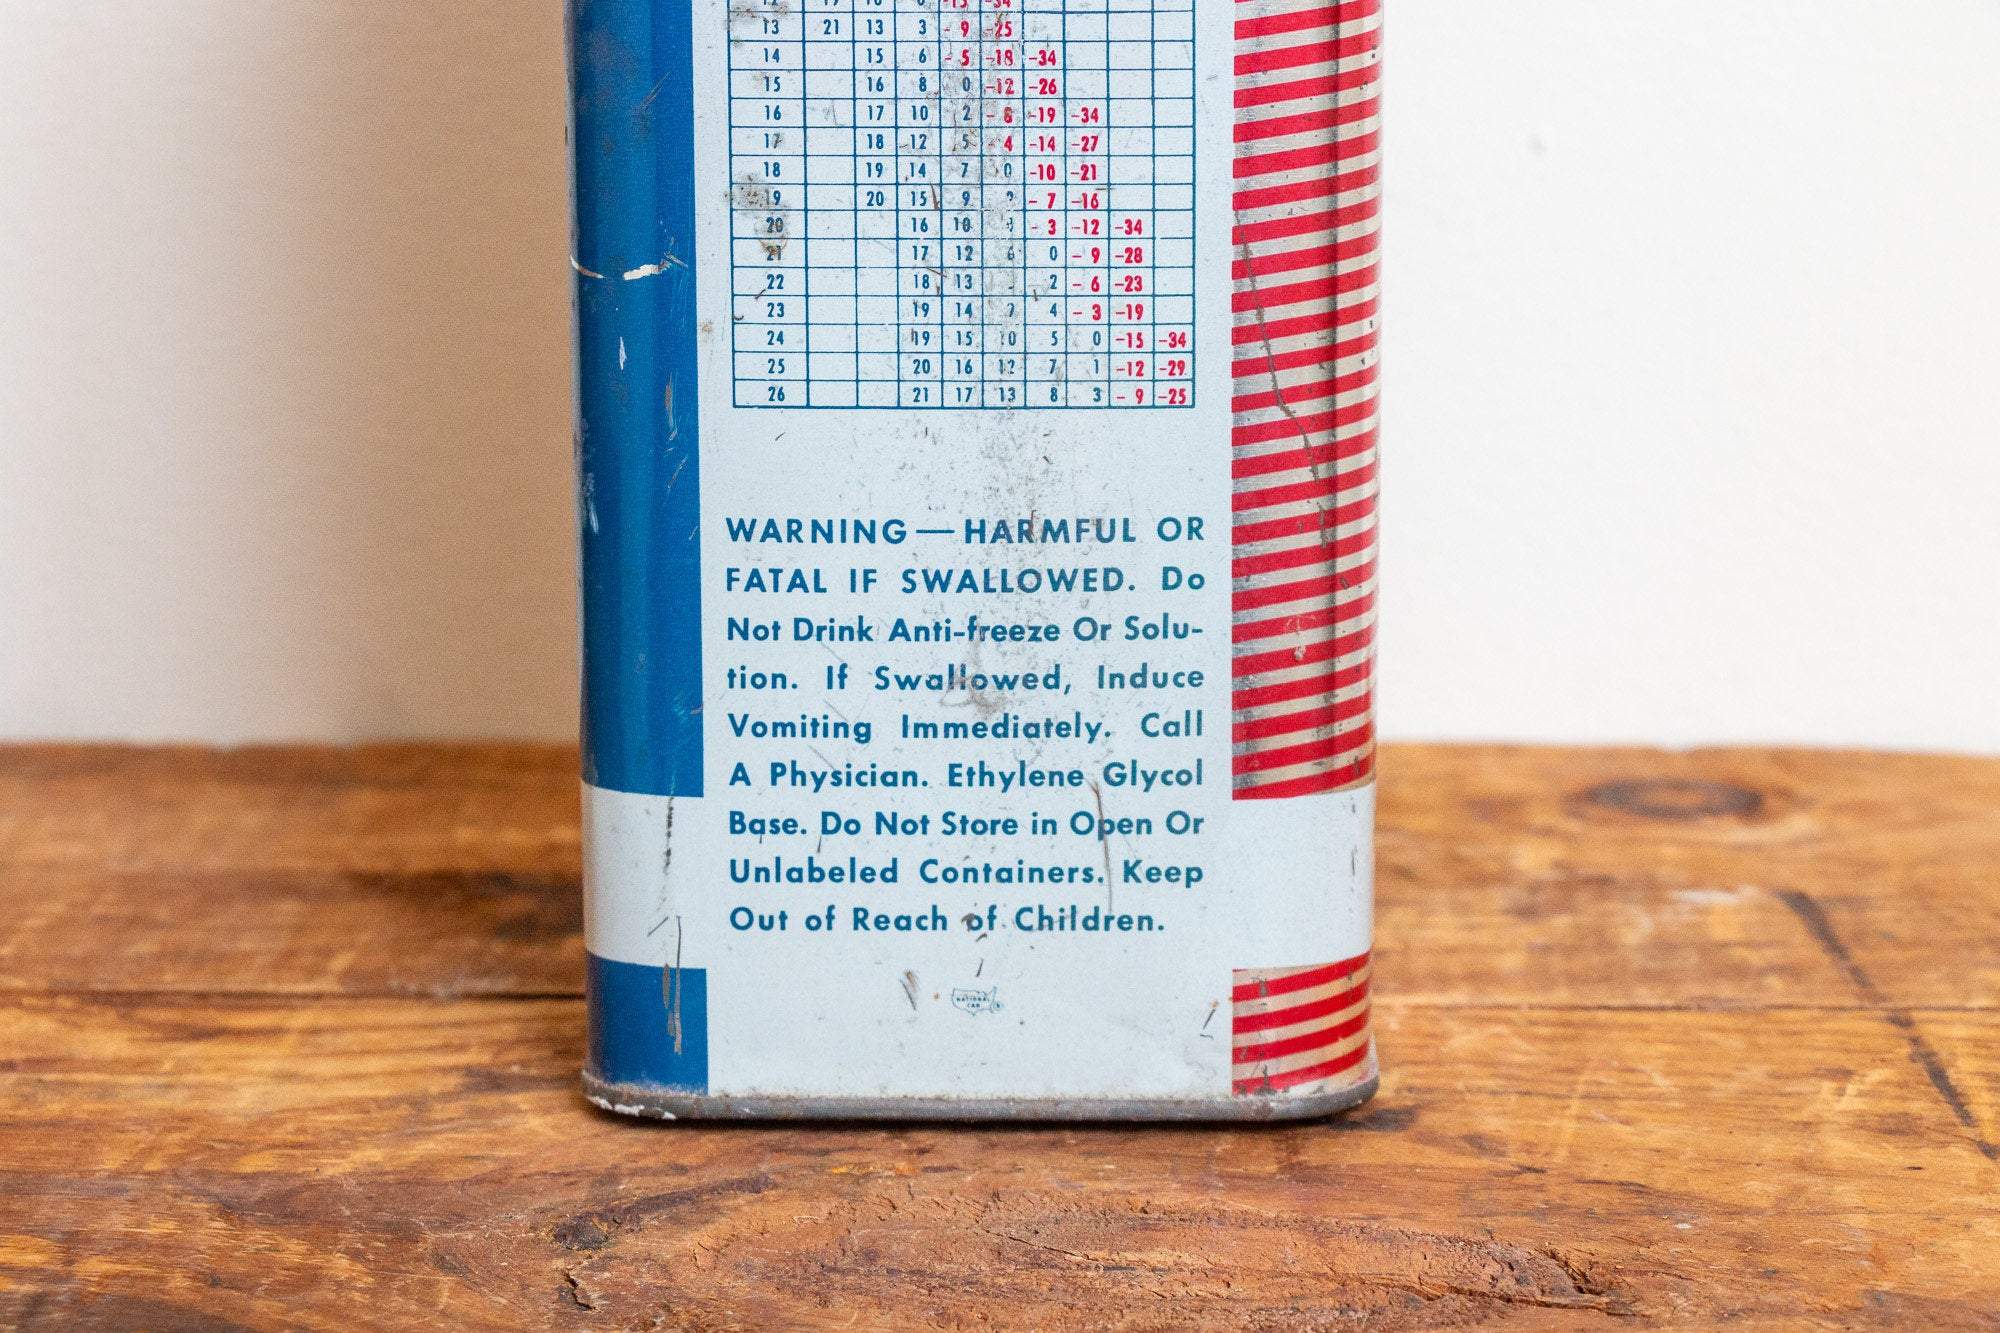 13 21 13 3 - 9 -25
14 15 6 - 5 -18 -34
15 16 8 0 -12 -26
16 17 10 2 - 8 -19 -34
17 18 12 5 - 4 -14 -27
18 19 14 7 0 -10 -21
19 20 15 9 - 7 -16
20 16 10 - 3 -12 -34
21 17 12 6 0 - 9 -28
22 18 13 2 - 6 -23
23 19 14 4 - 3 -19
24 19 15 10 5 0 -15 -34
25 20 16 12 7 1 -12 -29
26 21 17 13 8 3 - 9 -25
WARNING — HARMFUL OR
FATAL IF SWALLOWED. Do
Not Drink Anti-freeze Or Solu-
tion. If Swallowed, Induce
Vomiting Immediately. Call
A Physician. Ethylene Glycol
Base. Do Not Store in Open Or
Unlabeled Containers. Keep
Out of Reach of Children.
NATIONAL
CAN